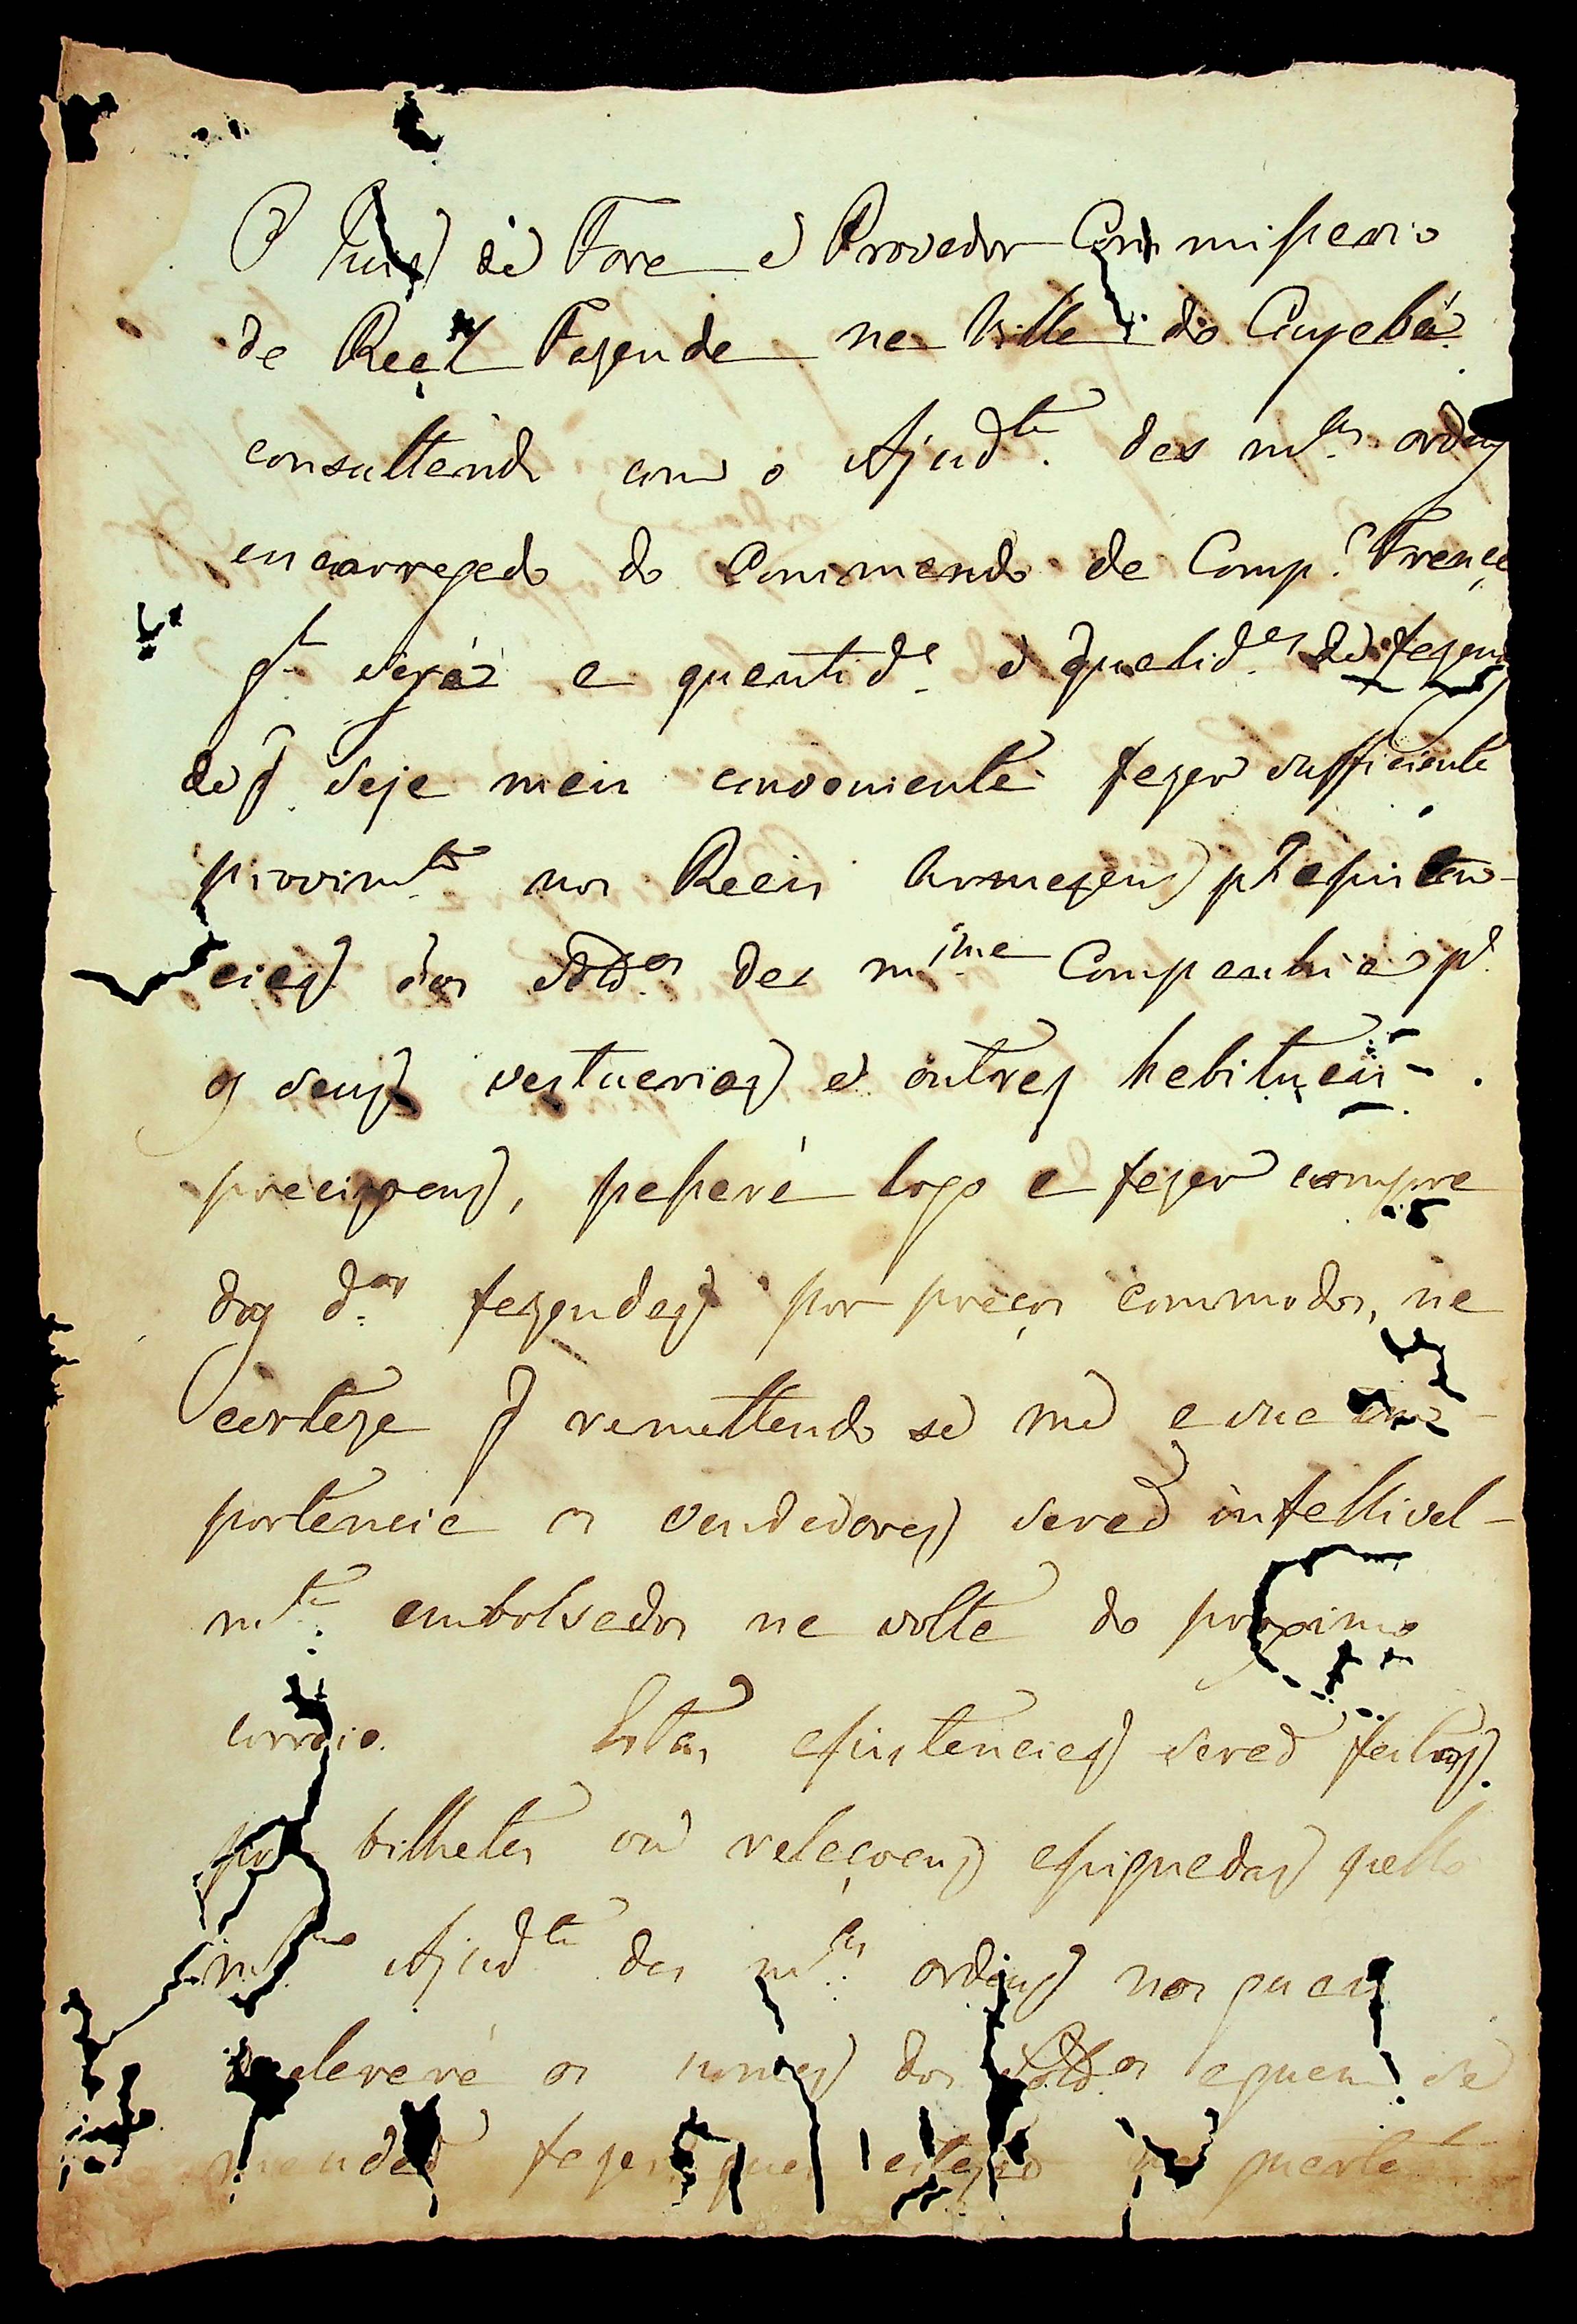 O Juiz de Fora e Provedor Commissario
da Real Fazenda na Villa do Cuyabá
consultando com o Ajud.te das m.as ordens
encarregado do Commando da Comp.a Franca
q.l será a quantid.e e qualid.es de fazen
da q̃ seja mais conveniente fazer sufficiente
provim.to nos Reaes Armazens p.a assisten-
cias dos Sold.os da m.ma Companhia p.a
os seus vestuarios e outras habituaes
precizoens, passará logo a fazer compra
das d.as fazendas por preços commodos, na
certeza q̃ remettendo se me a sua im-
portancia os vendedores serão infallivel-
m.te embolsados na volta do proximo
correio. Estas assistencias serão feitas
por bilhetes ou relaçoens assignadas pello
m.mo Ajud.te das m.as ordens nos quaes
declarará os nomes dos Sold.os a quem se
mandão fazer, que estejão no quartel